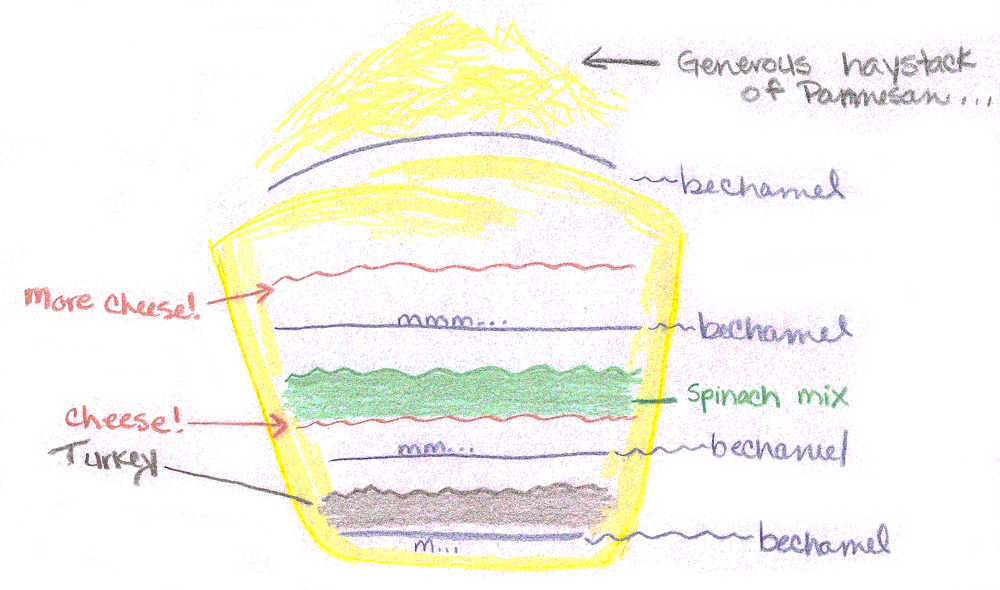 Generous haystack
of Parmesan...
bechamel
More cheese!
mmm...
bechamel
Spinach mix
cheese!
mm...
bechamel
Turkey
m...
bechamel